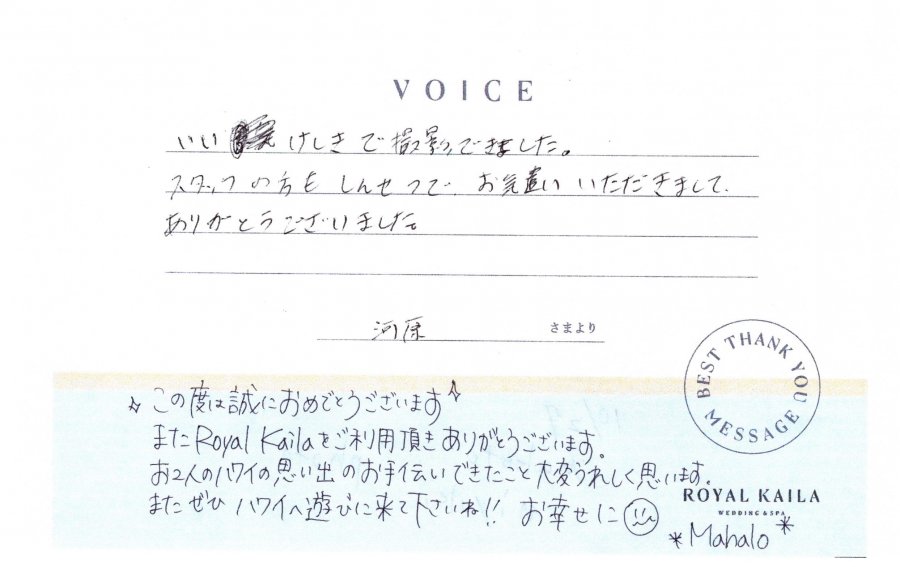 VOICE
いい けしきで撮影できました。
スタッフの方も しんせつで、お気遣い いただきまして、
ありがとうございました。
河原 さまより
BEST THANK YOU MESSAGE
この度は誠におめでとうございます
またRoyal Kailaをご利用頂きありがとうございます。
お2人のハワイの思い出のお手伝いできたこと大変うれしく思います。
またぜひ ハワイへ遊びに来て下さいね!! お幸せに
ROYAL KAILA
WEDDING & SPA
*Mahalo*